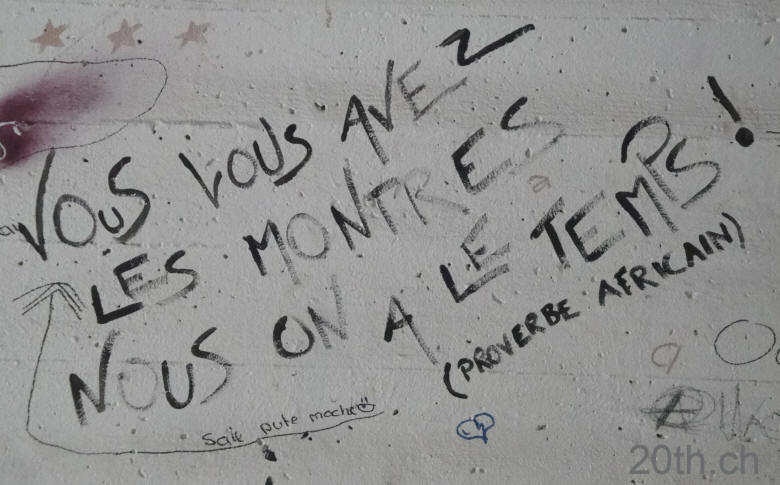 VOUS VOUS AVEZ
LES MONTRES
NOUS ON A LE TEMPS!
(PROVERBE AFRICAIN)
Sale pute moche
20th.ch